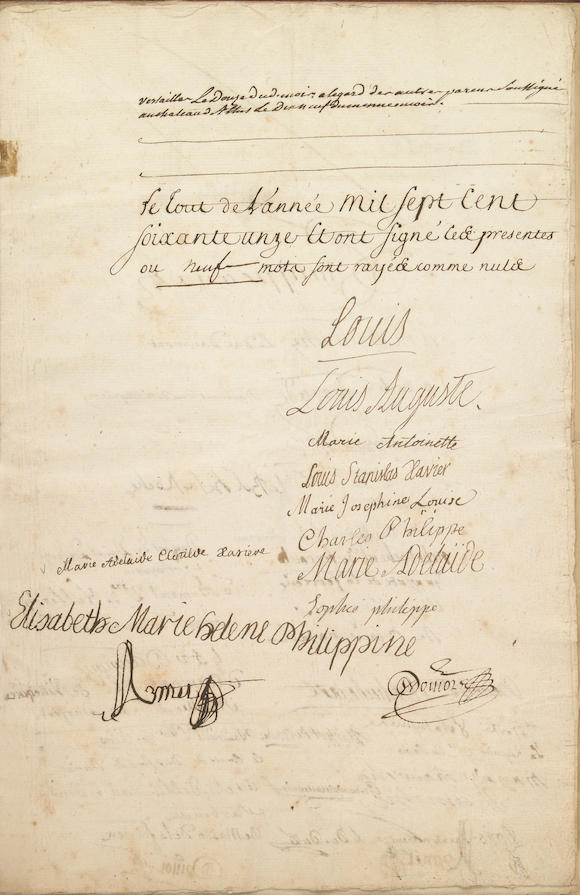 Versailles Le Douze dud. mois, a legard des autres parens Soussigné
au chateau d' Le Dix neuf du meme mois.
Le tout de l'année mil sept cent
soixante unze Et ont signé ces presentes
ou neuf mots sont rayés comme nuls
Louis
Louis Auguste.
Marie Antoinette
Louis Stanislas Xavier
Marie Josephine Louise
Charles Philippe
Marie Adelaide Clotilde Xaviere
Marie Adélaïde
Sophie philippe
Elisabeth Marie helene Philippine